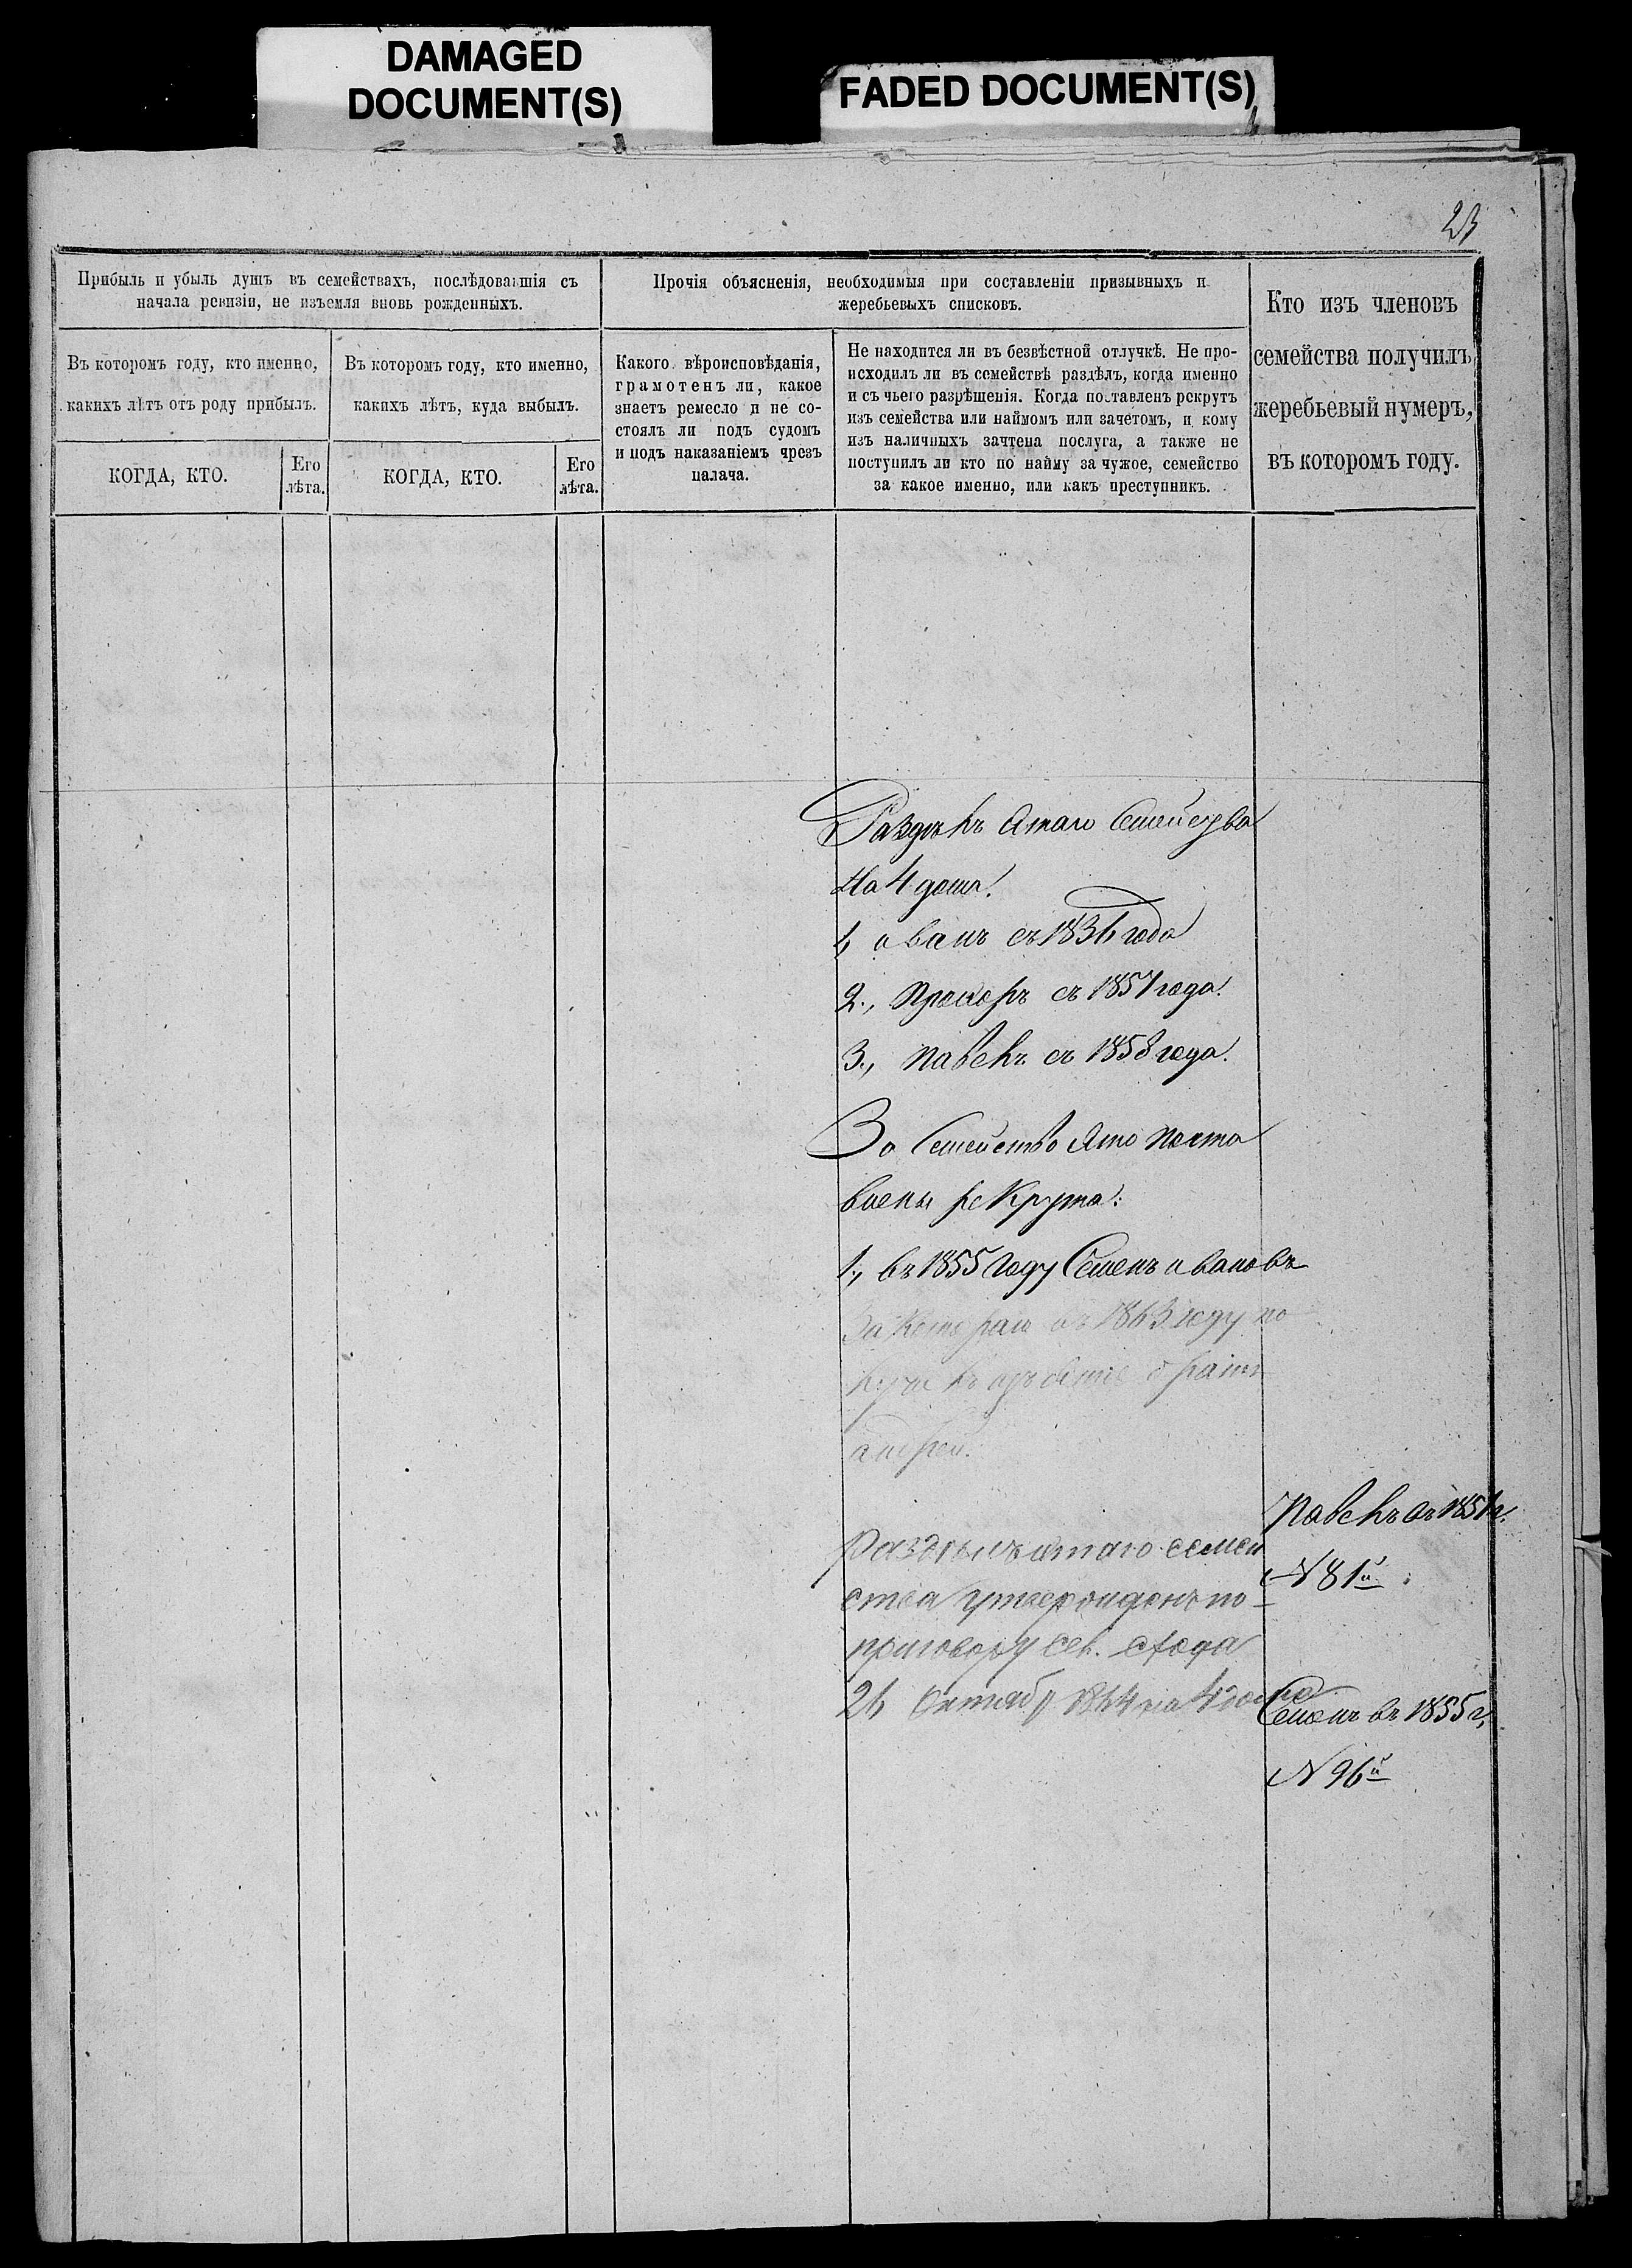 DAMAGED
DOCUMENT(S)
FADED DOCUMENT(S)
23
Прибыль и убыль душъ въ семействахъ, послѣдовавшія съ
начала ревизіи, не изъемля вновь рожденныхъ.
Въ которомъ году, кто именно,
какихъ лѣтъ отъ роду прибылъ.
КОГДА, КТО.
Его
лѣта.
Въ которомъ году, кто именно,
какихъ лѣтъ, куда выбылъ.
КОГДА, КТО.
Его
лѣта.
Прочія объясненія, необходимыя при составленіи призывныхъ и
жеребьевыхъ списковъ.
Какого вѣроисповѣданія,
грамотенъ ли, какое
знаетъ ремесло и не со-
стоялъ ли подъ судомъ
и подъ наказаніемъ чрезъ
палача.
Не находится ли въ безвѣстной отлучкѣ. Не про-
исходилъ ли въ семействѣ раздѣлъ, когда именно
и съ чьего разрѣшенія. Когда поставленъ рекрутъ
изъ семейства или наймомъ или зачетомъ, и кому
изъ наличныхъ зачтена послуга, а также не
поступилъ ли кто по найму за чужое, семейство
за какое именно, или какъ преступникъ.
Кто изъ членовъ
семейства получилъ
жеребьевый нумеръ,
въ которомъ году.
Раздѣлъ Этаго Семейства
На 4 дома.
1, иванъ съ 1836 года
2., Прохоръ съ 1857 года.
3., Павелъ съ 1858 года.
За Семейство Это поста
влены рекрута:
1., въ 1855 году Семенъ ивановъ
За котораго въ 1863 году по
братъ
андрей.
Раздѣлъ этаго семей
ства утвержденъ по
приговору сел. схода
26 Октября 1864 на 4 дома
Павелъ въ 1854 г.
N 81й
Семенъ въ 1855 г,
N 96й